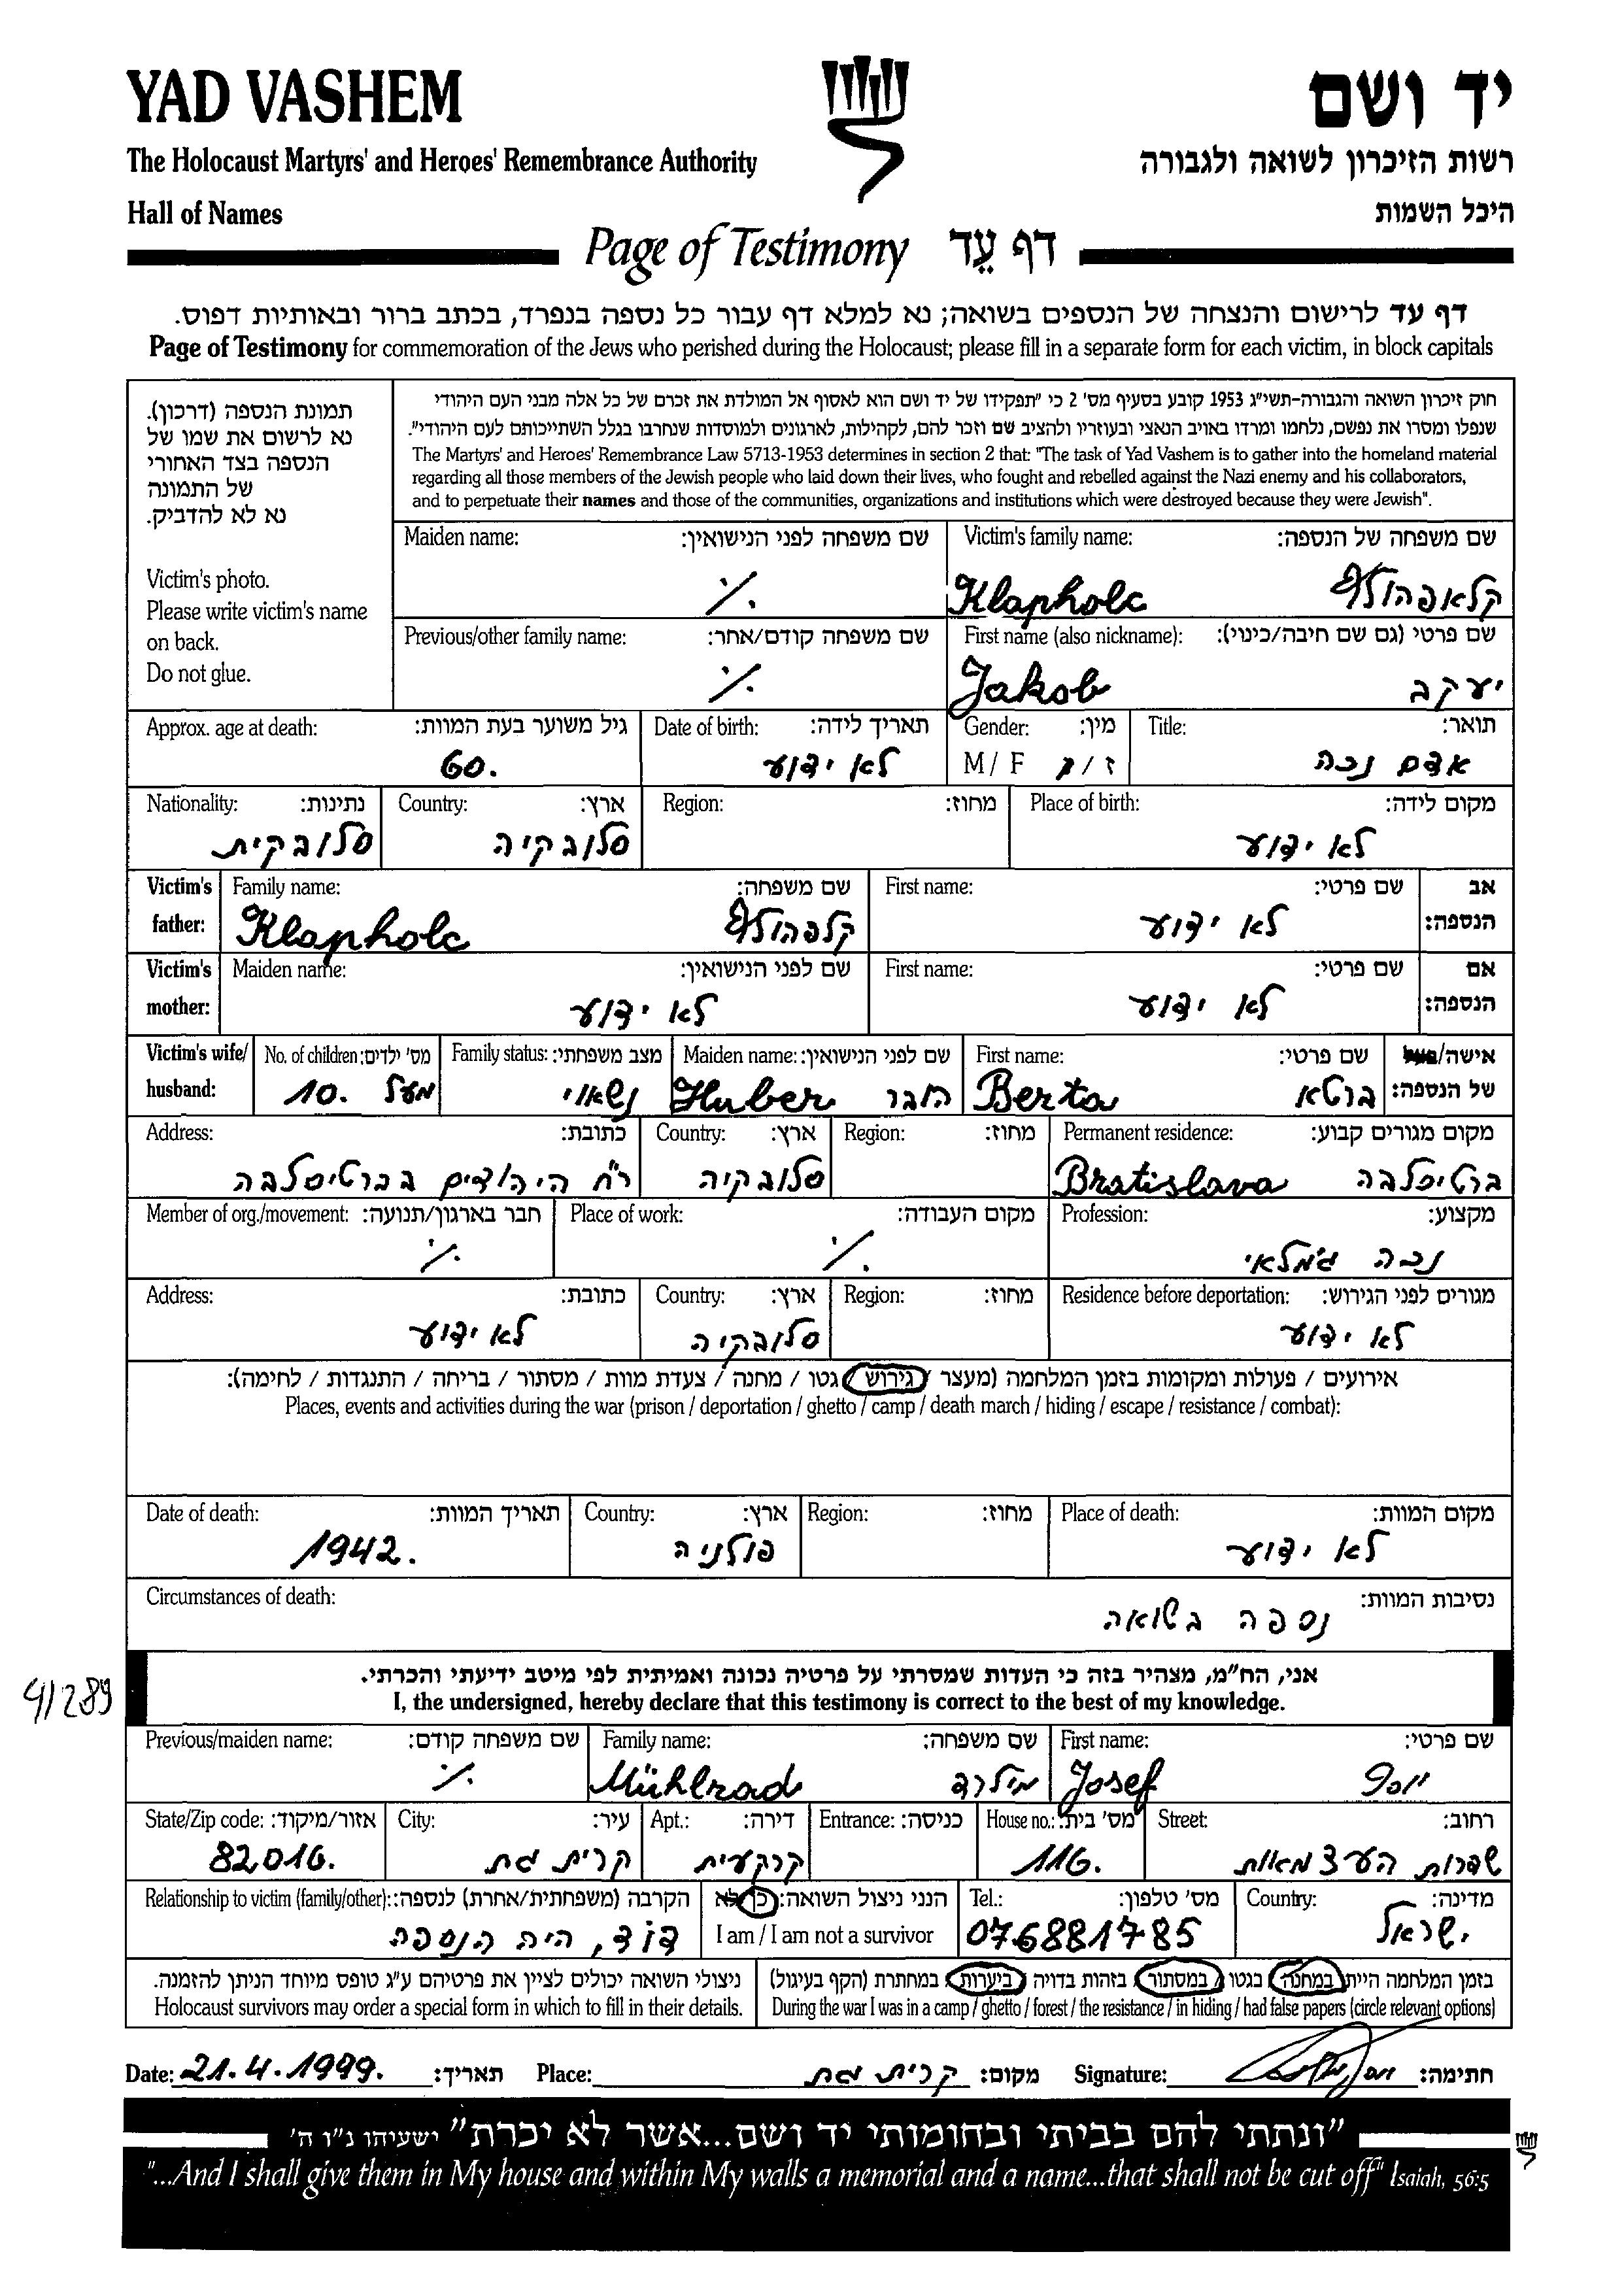 YAD VASHEM
יד ושם
The Holocaust Martyrs' and Heroes' Remembrance Authority
רשות הזיכרון לשואה ולגבורה
Hall of Names
היכל השמות
Page of Testimony דף עֵד
דף עד לרישום והנצחה של הנספים בשואה; נא למלא דף עבור כל נספה בנפרד, בכתב ברור ובאותיות דפוס.
Page of Testimony for commemoration of the Jews who perished during the Holocaust; please fill in a separate form for each victim, in block capitals
תמונת הנספה (דרכון).
נא לרשום את שמו של
הנספה בצד האחורי
של התמונה
נא לא להדביק.
Victim's photo.
Please write victim's name
on back.
Do not glue.
חוק זיכרון השואה והגבורה-תשי"ג 1953 קובע בסעיף מס' 2 כי "תפקידו של יד ושם הוא לאסוף אל המולדת את זכרם של כל אלה מבני העם היהודי
שנפלו ומסרו את נפשם, נלחמו ומרדו באויב הנאצי ובעוזריו ולהציב שם וזכר להם, לקהילות, לארגונים ולמוסדות שנחרבו בגלל השתייכותם לעם היהודי".
The Martyrs' and Heroes' Remembrance Law 5713-1953 determines in section 2 that: "The task of Yad Vashem is to gather into the homeland material
regarding all those members of the Jewish people who laid down their lives, who fought and rebelled against the Nazi enemy and his collaborators,
and to perpetuate their names and those of the communities, organizations and institutions which were destroyed because they were Jewish".
Maiden name: שם משפחה לפני הנישואין: Victim's family name: שם משפחה של הנספה:
./. Klapholc קלאפהולץ
Previous/other family name: שם משפחה קודם/אחר: First name (also nickname): שם פרטי (גם שם חיבה/כינוי):
./. Jakob יעקב
Approx. age at death: גיל משוער בעת המוות: Date of birth: תאריך לידה: Gender: מין: Title: תואר:
60. לא ידוע M / F ז / נ אדם נכה
Nationality: נתינות: Country: ארץ: Region: מחוז: Place of birth: מקום לידה:
סלובקית סלובקיה לא ידוע
Victim's father: Family name: שם משפחה: First name: שם פרטי: אב הנספה:
Klapholc קלפהולץ לא ידוע
Victim's mother: Maiden name: שם לפני הנישואין: First name: שם פרטי: אם הנספה:
לא ידוע לא ידוע
Victim's wife/ husband: No. of children: מס' ילדים: Family status: מצב משפחתי: Maiden name: שם לפני הנישואין: First name: שם פרטי: אישה/בעל של הנספה:
מעל 10. נשאוי Huber הובר Berta ברטא
Address: כתובת: Country: ארץ: Region: מחוז: Permanent residence: מקום מגורים קבוע:
רח' היהודים בברטיסלבה סלובקיה Bratislava ברטיסלבה
Member of org./movement: חבר בארגון/תנועה: Place of work: מקום העבודה: Profession: מקצוע:
./. ./. נכה גמלאי
Address: כתובת: Country: ארץ: Region: מחוז: Residence before deportation: מגורים לפני הגירוש:
לא ידוע סלובקיה לא ידוע
אירועים / פעולות ומקומות בזמן המלחמה (מעצר / גירוש / גטו / מחנה / צעדת מוות / מסתור / בריחה / התנגדות / לחימה):
Places, events and activities during the war (prison / deportation / ghetto / camp / death march / hiding / escape / resistance / combat):
Date of death: תאריך המוות: Country: ארץ: Region: מחוז: Place of death: מקום המוות:
1942. פולניה לא ידוע
Circumstances of death: נסיבות המוות:
נספה בשואה
אני, הח"מ, מצהיר בזה כי העדות שמסרתי על פרטיה נכונה ואמיתית לפי מיטב ידיעתי והכרתי.
I, the undersigned, hereby declare that this testimony is correct to the best of my knowledge.
41289
Previous/maiden name: שם משפחה קודם: Family name: שם משפחה: First name: שם פרטי:
./. Mühlrad מילרד Josef יוסף
State/Zip code: אזור/מיקוד: City: עיר: Apt.: דירה: Entrance: כניסה: House no.: מס' בית: Street: רחוב:
82016. קרית גת קרקעית 116. שדרות העצמאות
Relationship to victim (family/other): הקרבה (משפחתית/אחרת) לנספה: הנני ניצול השואה: כן/לא Tel.: מס' טלפון: Country: מדינה:
דוד, היה הנספה I am / I am not a survivor 076881785 ישראל
ניצולי השואה יכולים לציין את פרטיהם ע"ג טופס מיוחד הניתן להזמנה. בזמן המלחמה הייתי במחנה / בגטו / במסתור / בזהות בדויה / ביערות / במחתרת (הקף בעיגול)
Holocaust survivors may order a special form in which to fill in their details. During the war I was in a camp / ghetto / forest / the resistance / in hiding / had false papers (circle relevant options)
Date: 21.4.1999. תאריך: Place: קרית גת מקום: Signature: חתימה:
"ונתתי להם בביתי ובחומותי יד ושם...אשר לא יכרת" ישעיהו נ"ו ה'
"...And I shall give them in My house and within My walls a memorial and a name...that shall not be cut off" Isaiah, 56:5